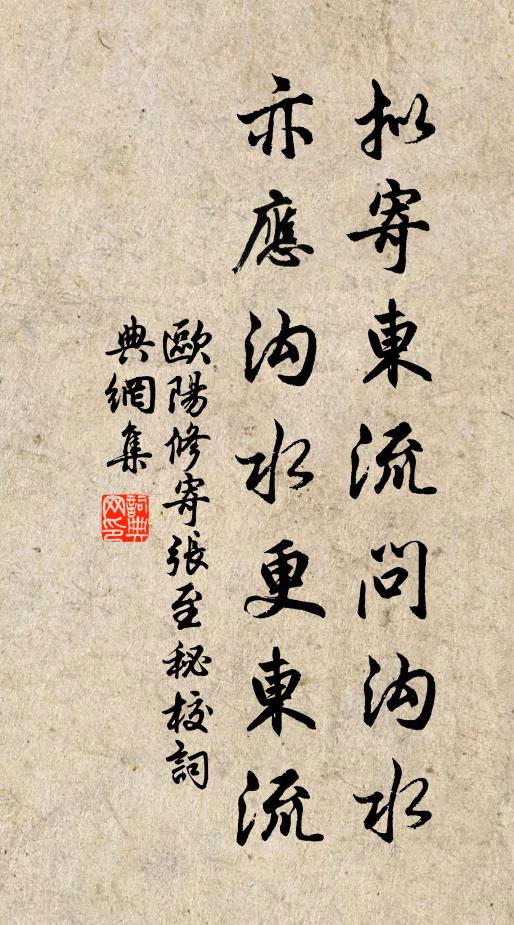 拟寄東流問沟水
亦應沟水更東流
歐陽修寄張至秘校詞
典網集
詞典网印